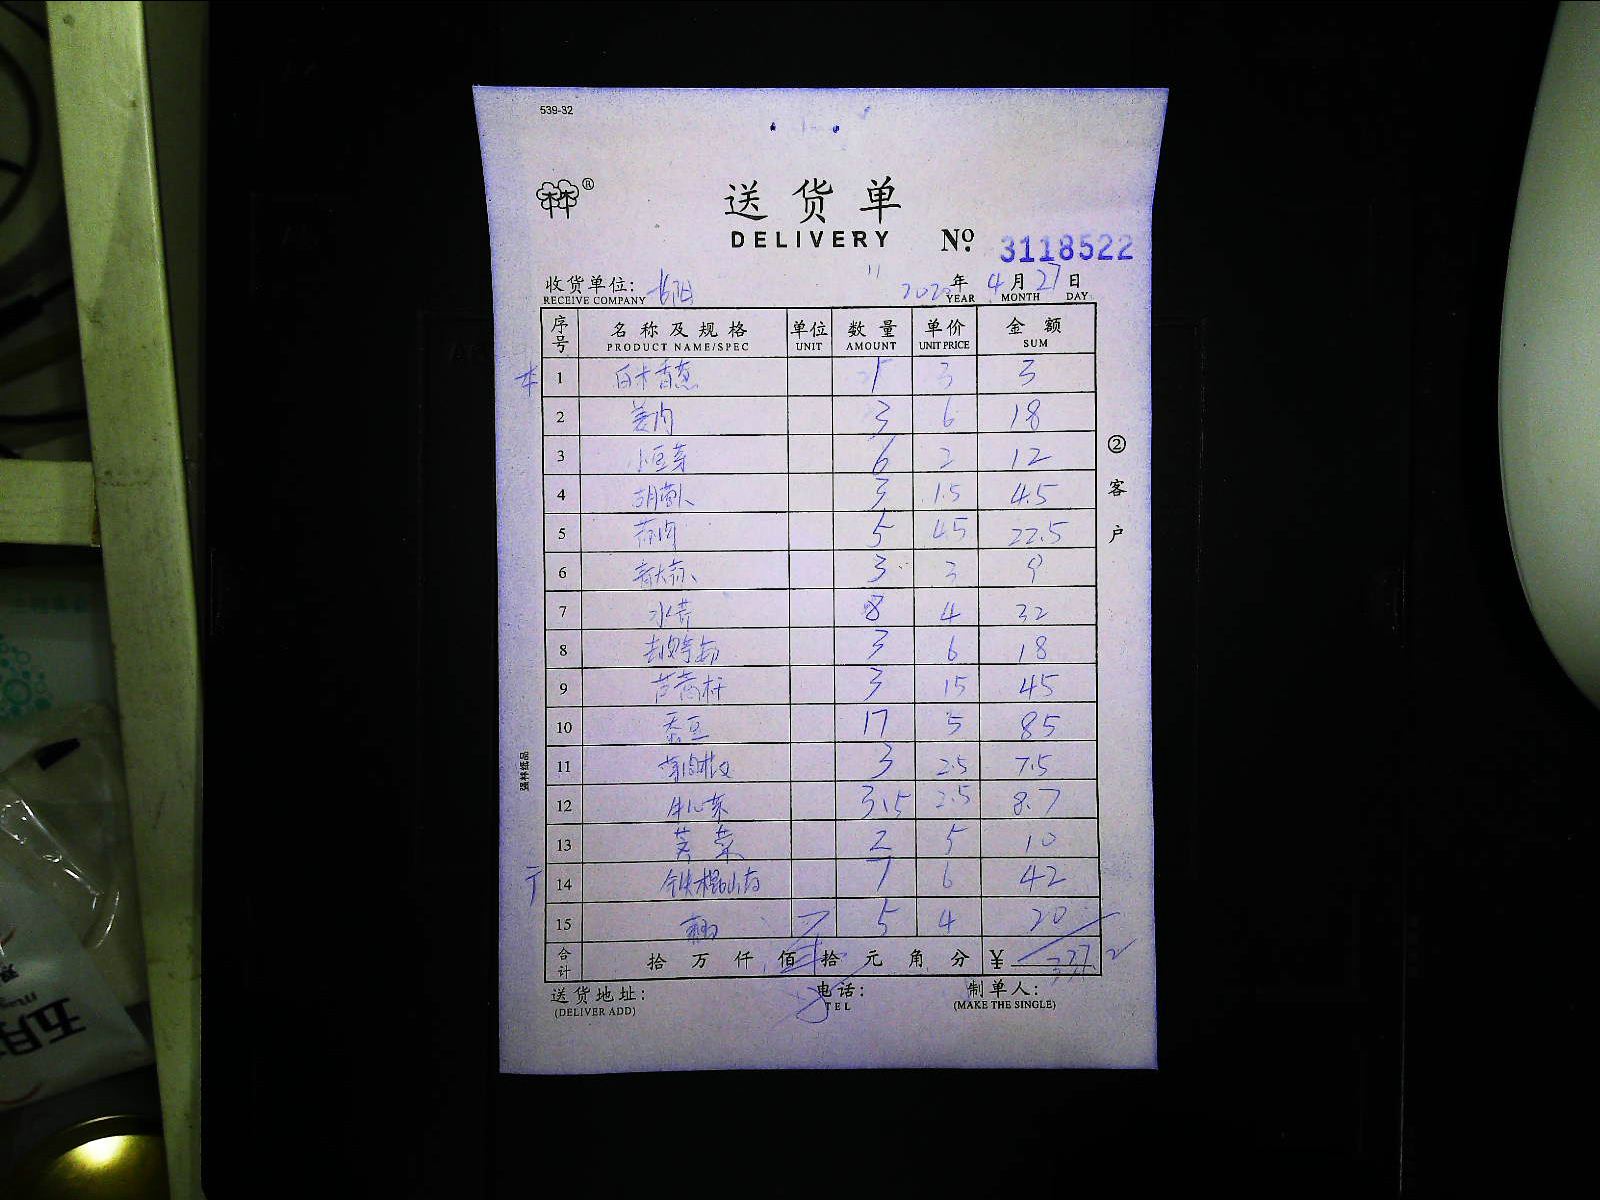 539-32
林®
送货单
DELIVERY № 3118522
收货单位: 2020年 4月 27日
RECEIVE COMPANY YEAR MONTH DAY
序号 名称及规格 单位 数量 单价 金额
PRODUCT NAME/SPEC UNIT AMOUNT UNIT PRICE SUM
1 1 3 3
2 姜肉 3 6 18
3 小豆芽 6 2 12
4 3 1.5 4.5
5 5 4.5 22.5
6 青大蒜 3 3 9
7 水芹 8 4 32
8 3 6 18
9 芦蒿杆 3 15 45
10 蚕豆 17 5 85
11 3 2.5 7.5
12 牛心菜 3.15 2.5 8.7
13 荠菜 2 5 10
14 铁棍山药 7 6 42
15 5 4 20
合计 拾 万 仟 佰 拾 元 角 分 ¥ 337.2
送货地址: 电话: 制单人:
(DELIVER ADD) TEL (MAKE THE SINGLE)
②客户
强林纸品
五月